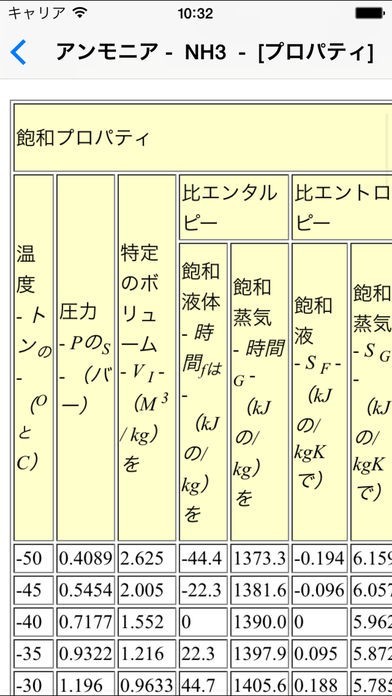 キャリア 10:32
アンモニア - NH3 - [プロパティ]
飽和プロパティ
温度 - トンの - （OとC）
圧力 - PのS - （バー）
特定のボリューム - VI - （M3 / kg）を
比エンタルピー
飽和液体 - 時間fは - （kJの/ kg）を
飽和蒸気 - 時間G - （kJの/ kg）を
比エントロピー
飽和液 - SF - （kJの/ kgKで）
飽和蒸気 - SG - （kJの/ kgKで）
-50 0.4089 2.625 -44.4 1373.3 -0.194 6.159
-45 0.5454 2.005 -22.3 1381.6 -0.096 6.057
-40 0.7177 1.552 0 1390.0 0 5.962
-35 0.9322 1.216 22.3 1397.9 0.095 5.872
-30 1.196 0.9633 44.7 1405.6 0.188 5.78